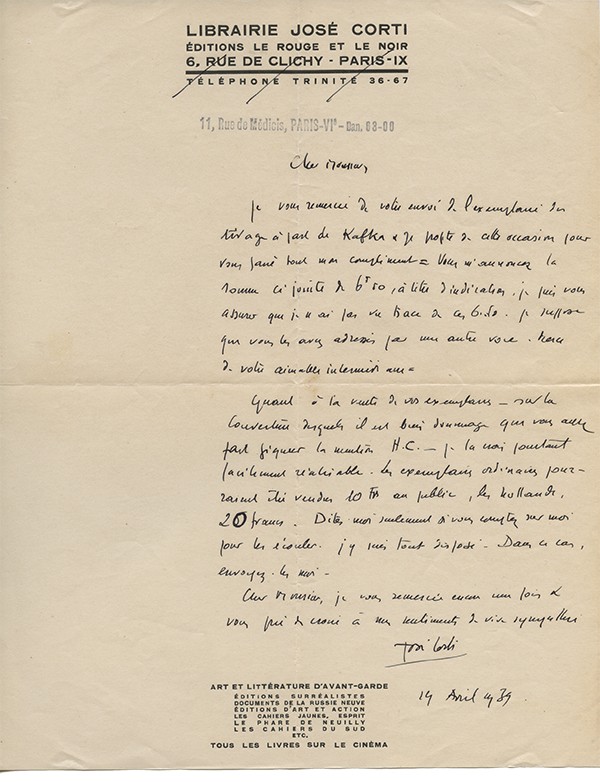 LIBRAIRIE JOSÉ CORTI
ÉDITIONS LE ROUGE ET LE NOIR
6, RUE DE CLICHY - PARIS-IX
TÉLÉPHONE TRINITÉ 36-67
11, Rue de Médicis, PARIS-VIe - Dan. 63-00
Cher Monsieur,
Je vous remercie de votre envoi de l'exemplaire du
tirage à part de Kafka & je profite de cette occasion pour
vous faire tout mon compliment = Vous m'annoncez la
somme ci jointe de 6f 50, à titre d'indication, je puis vous
assurer que je n'ai pas vu trace de ces 6.50. Je suppose
que vous les avez adressés par une autre voie. Merci
de votre aimable intention
Quant à la vente de vos exemplaires - sur la
couverture desquels il est bien dommage que vous ayez
fait figurer la mention H.C. - je la crois pourtant
facilement réalisable. Les exemplaires ordinaires pour-
raient être vendus 10 frs au public, les hollande,
20 francs. Dites moi seulement si vous comptez sur moi
pour les écouler. J'y suis tout disposé - Dans ce cas,
envoyez-les moi -
Cher Monsieur, je vous remercie encore une fois &
vous prie de croire à mes sentiments de vive sympathie
José Corti
19 Avril 1939
ART ET LITTÉRATURE D'AVANT-GARDE
ÉDITIONS SURRÉALISTES
DOCUMENTS DE LA RUSSIE NEUVE
ÉDITIONS D'ART ET ACTION
LES CAHIERS JAUNES, ESPRIT
LE PHARE DE NEUILLY
LES CAHIERS DU SUD
ETC.
TOUS LES LIVRES SUR LE CINÉMA